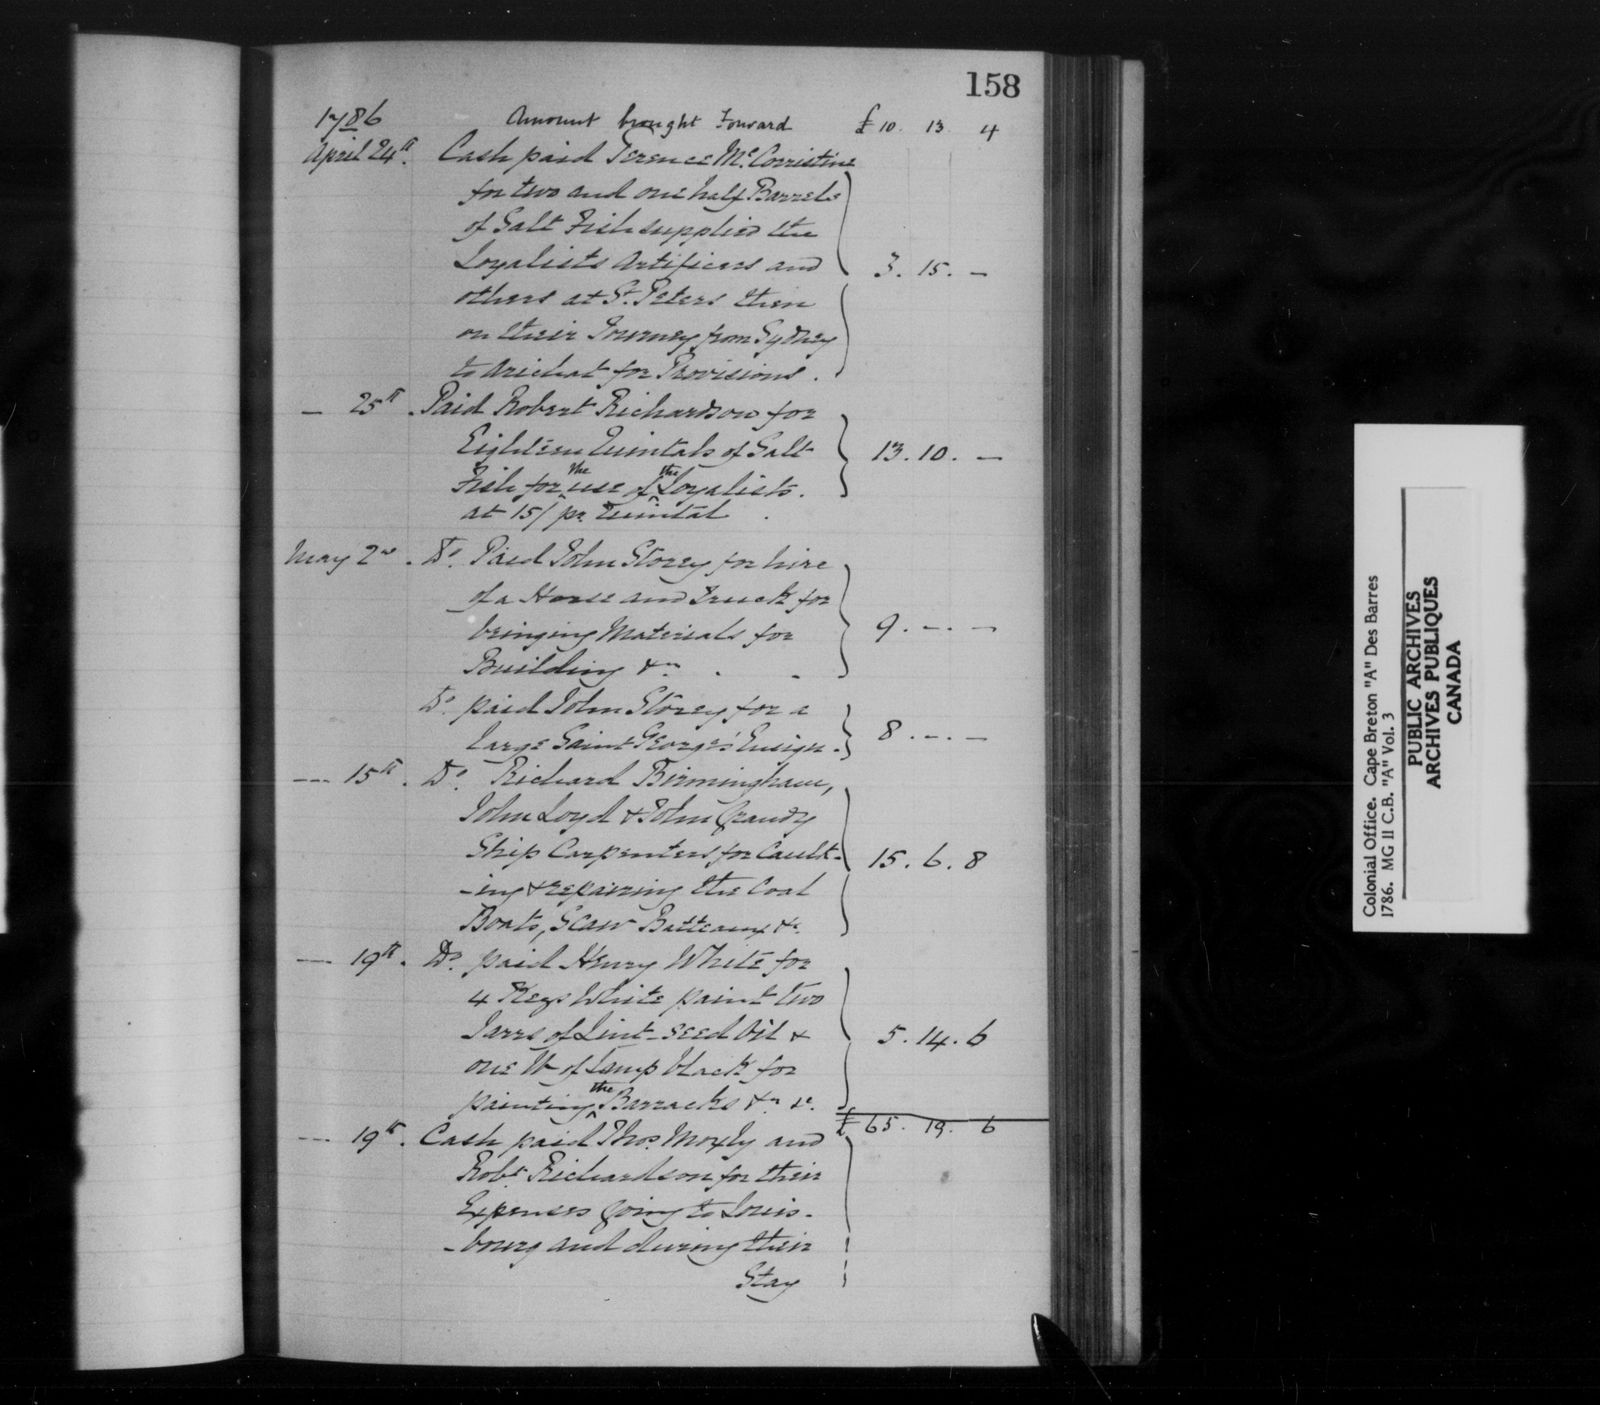 158
1786 Amount brought Forward £ 10. 13. 4
April 24th. Cash paid Terence McCorristine
for two and one half Barrels
of Salt Fish supplied the
Loyalists Artificers and 3. 15. —
others at St. Peters then
on their Journey from Sydney
to Arichat for Provisions.
— 25th. Paid Robert Richardson for
Eighteen Quintals of Salt 13. 10. —
Fish for the use of the Loyalists.
at 15/ pr. Quintal
May 2nd. Do. Paid John Storey for hire
of a Horse and Truck for
bringing Materials for 9. —. —
Building &ca.
Do. paid John Storey for a
large Saint George's Ensign. 8. —. —
— 15th. Do. Richard Birmingham,
John Loyd & John Grandy
Ship Carpenters for Caulk- 15. 6. 8
-ing & repairing the Coal
Boats, Scaw Batteaux &c.
— 19th. Do. paid Henry White for
4 Kegs White paint two
Jarrs of Lint-seed Oil & 5. 14. 6
one lb of Lamp black for
painting the Barracks &ca &c.
£ 65. 19. 6
— 19th. Cash paid Thos. Moxly and
Robt. Richardson for their
Expenses going to Louis-
-bourg and during their
Stay
Colonial Office. Cape Breton "A" Des Barres
1786. MG 11 C.B. "A" Vol. 3
PUBLIC ARCHIVES
ARCHIVES PUBLIQUES
CANADA